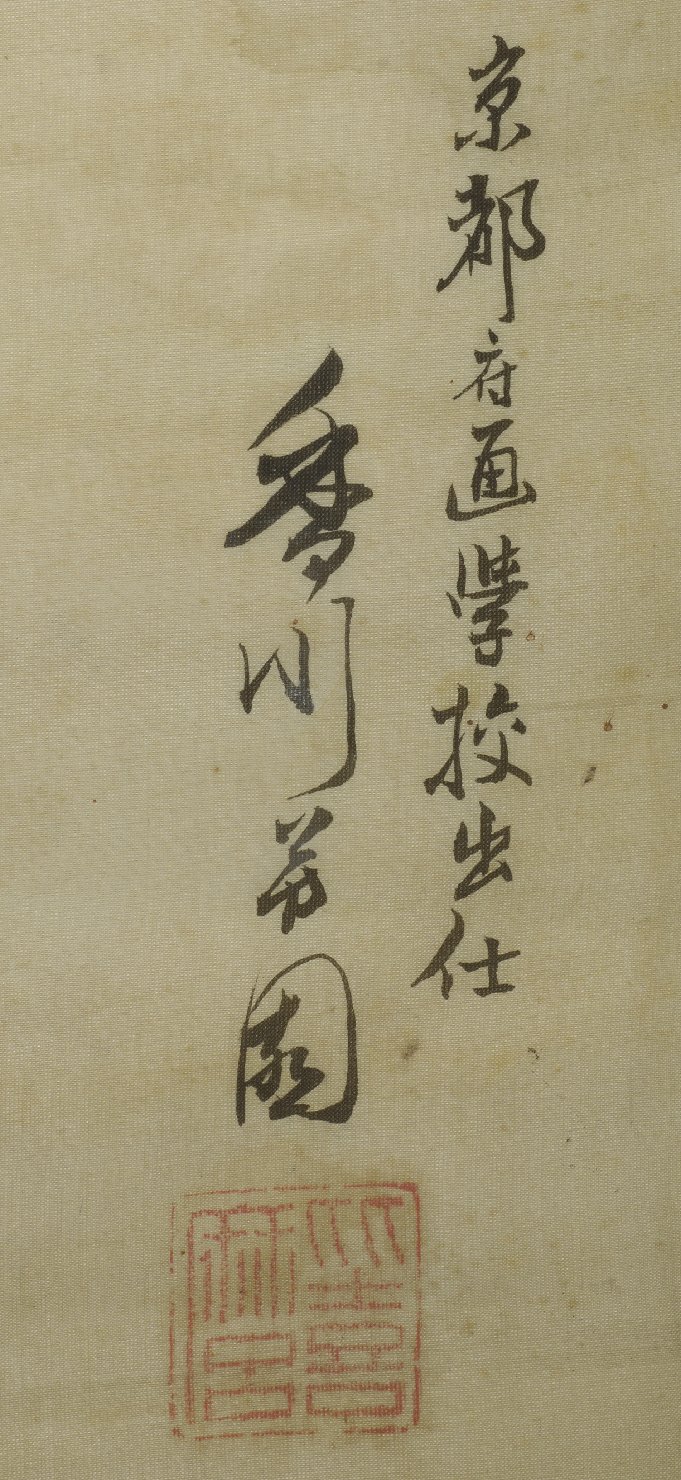 京都府画學校出仕
香川芳園